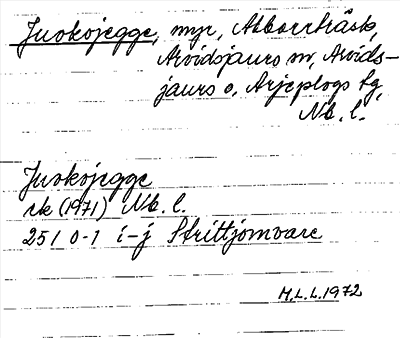 Juokojegge, myr, Abborrträsk,
Arvidsjaurs sn, Arvids-
jaurs o. Arjeplogs tg,
Nb. l.
Juokojegge
rk (1971) Nb. l.
25 I 0-1 i-j Strittjomvare
M.L.L. 1972